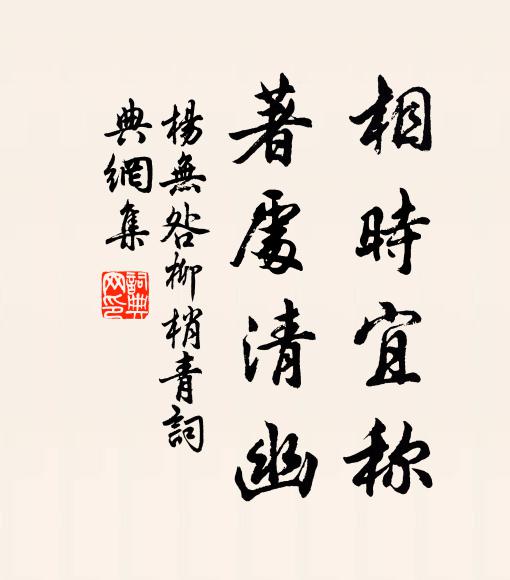 相時宜称
著處清幽
楊無咎柳梢青詞
典網集
詞典網印